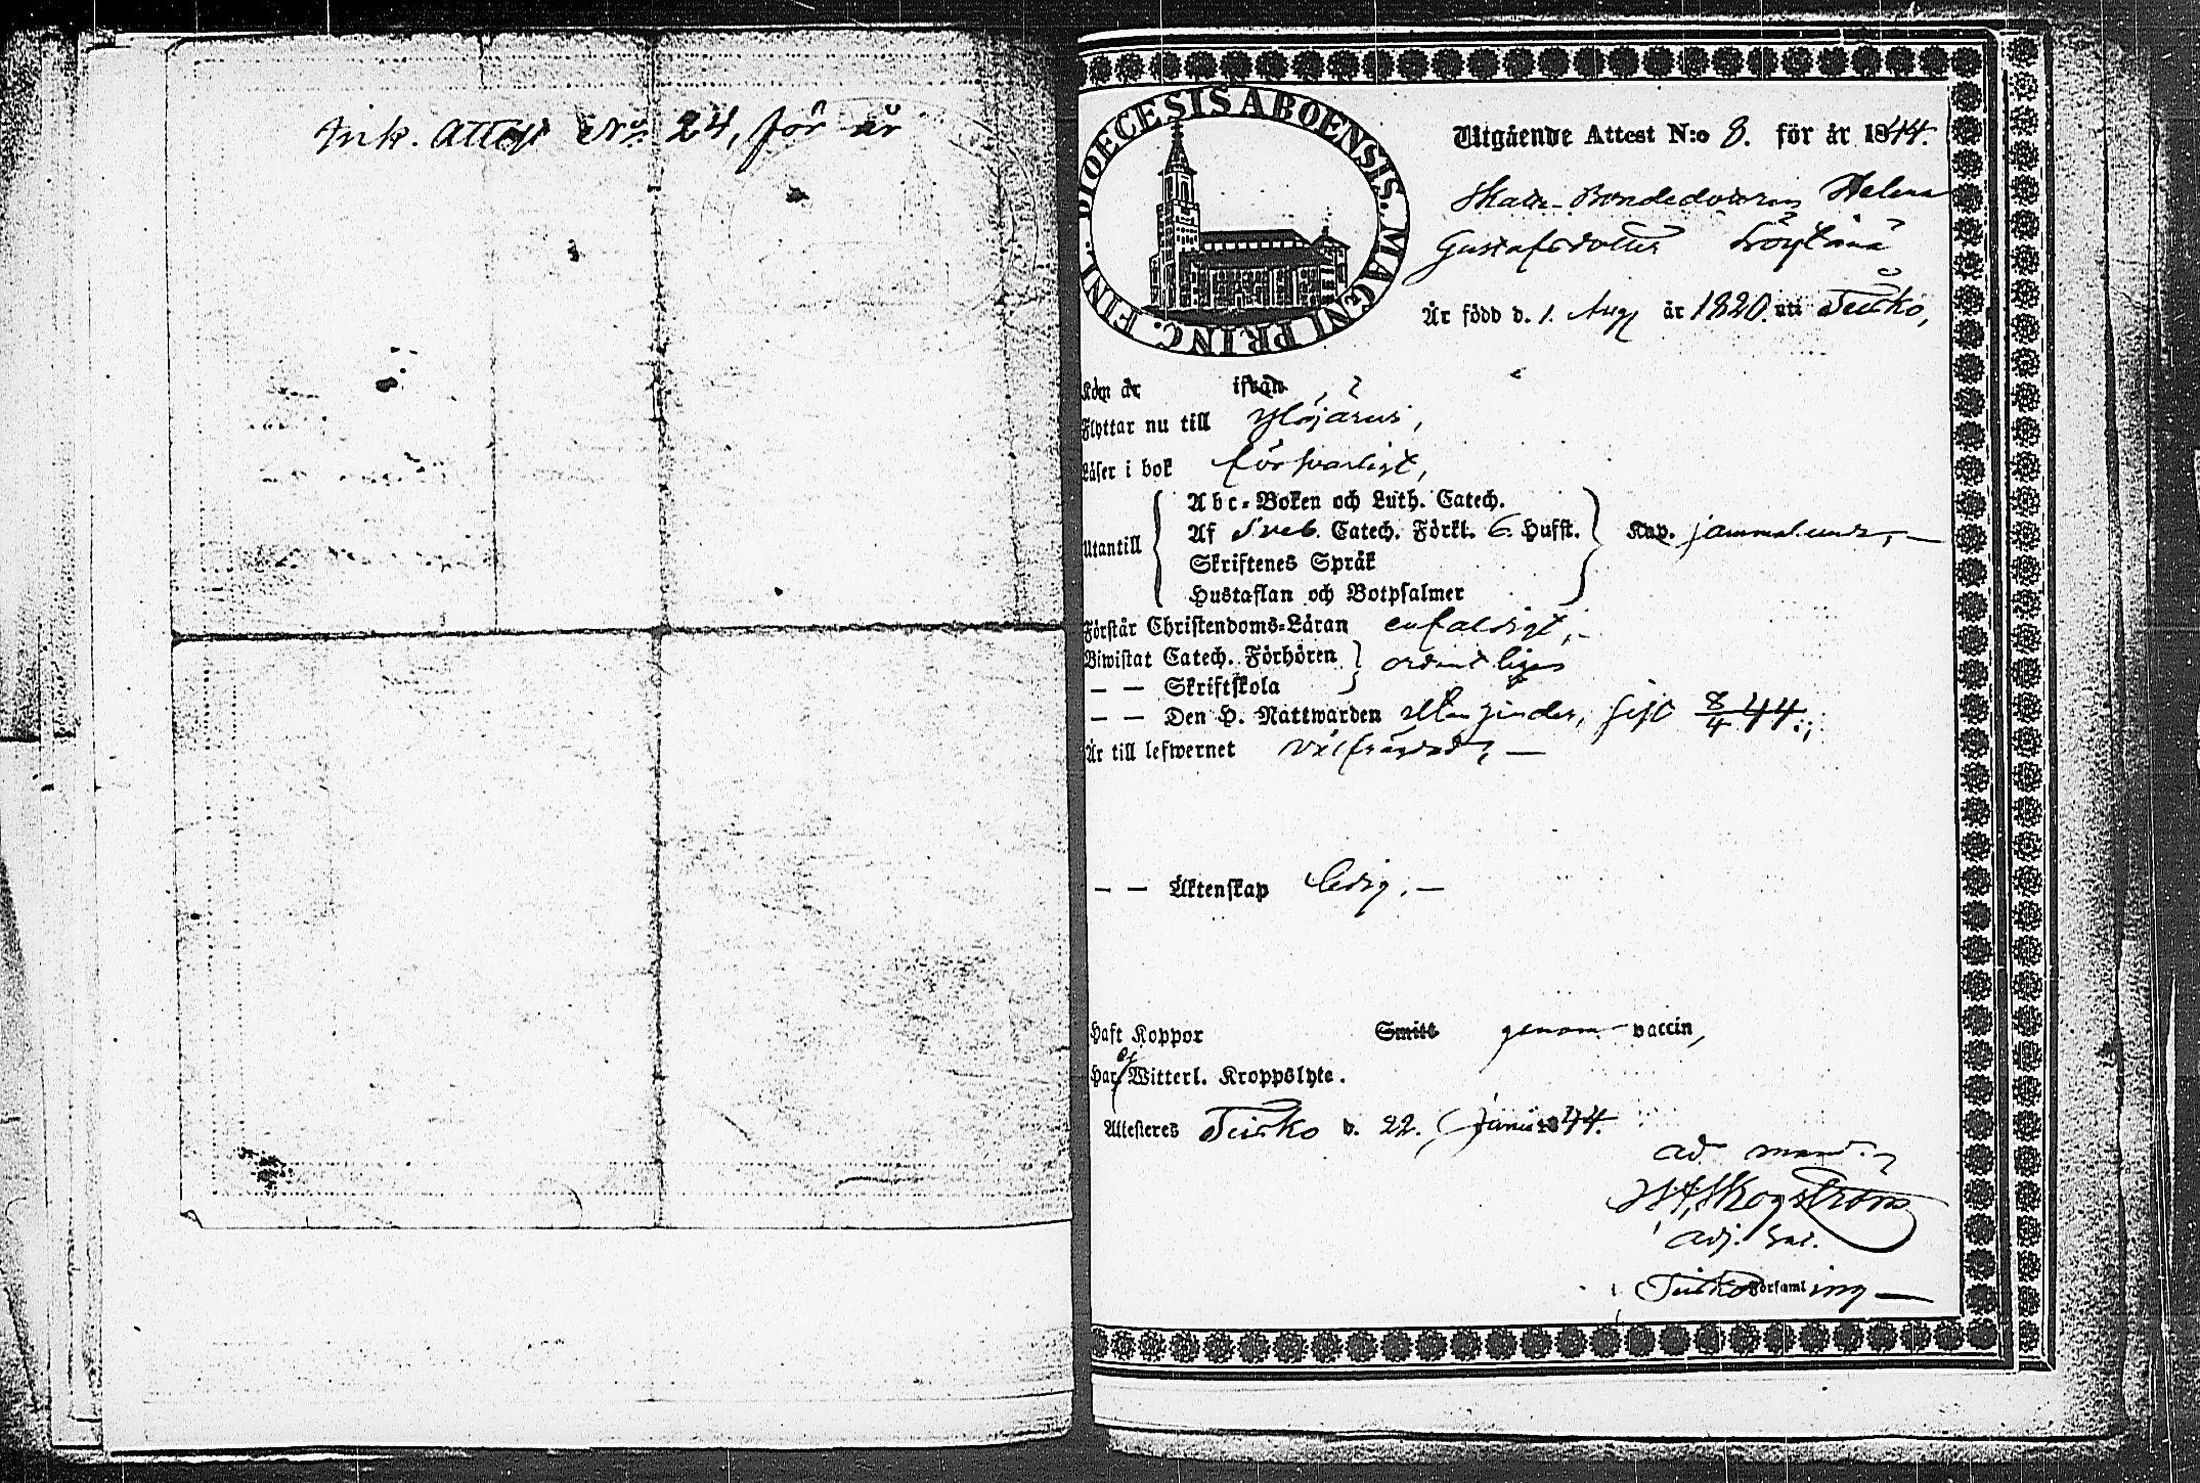 Ink. Attest No 24, för år
DIOECESIS ABOENSIS. MAGNI PRINC. FINL.
Utgående Attest N:o 8. för år 1844.
Skatt-Bondedottren Helena
Gustafsdotter
Är född d. 1. Aug är 1820. uti Teisko,
Kom år ifrån
Flyttar nu till Ylöjärvi,
Läser i bok försvarligt,
Abc-Boken och Luth. Catech.
Utantill Af Sveb. Catech. Förkl. 6. Hufst. Kap. jämmalunda,—
Skriftenes Språk
Hustaflan och Botpsalmer
Förstår Christendoms-Läran enfaldigt,—
Biwistat Catech. Förhören ordentligen
— — Skriftskola
— — Den H. Nattwarden sist 8/4 44.
Är till lefwernet välfräjdad, —
— — Äktenskap ledig. —
Haft Koppor Smitt genom vaccin,
Har ej Witterl. Kroppslyte.
Attesteres Teisko d. 22. Junii 1844.
ad mand.
Skogström
adj. Sac.
Teisko Församling —